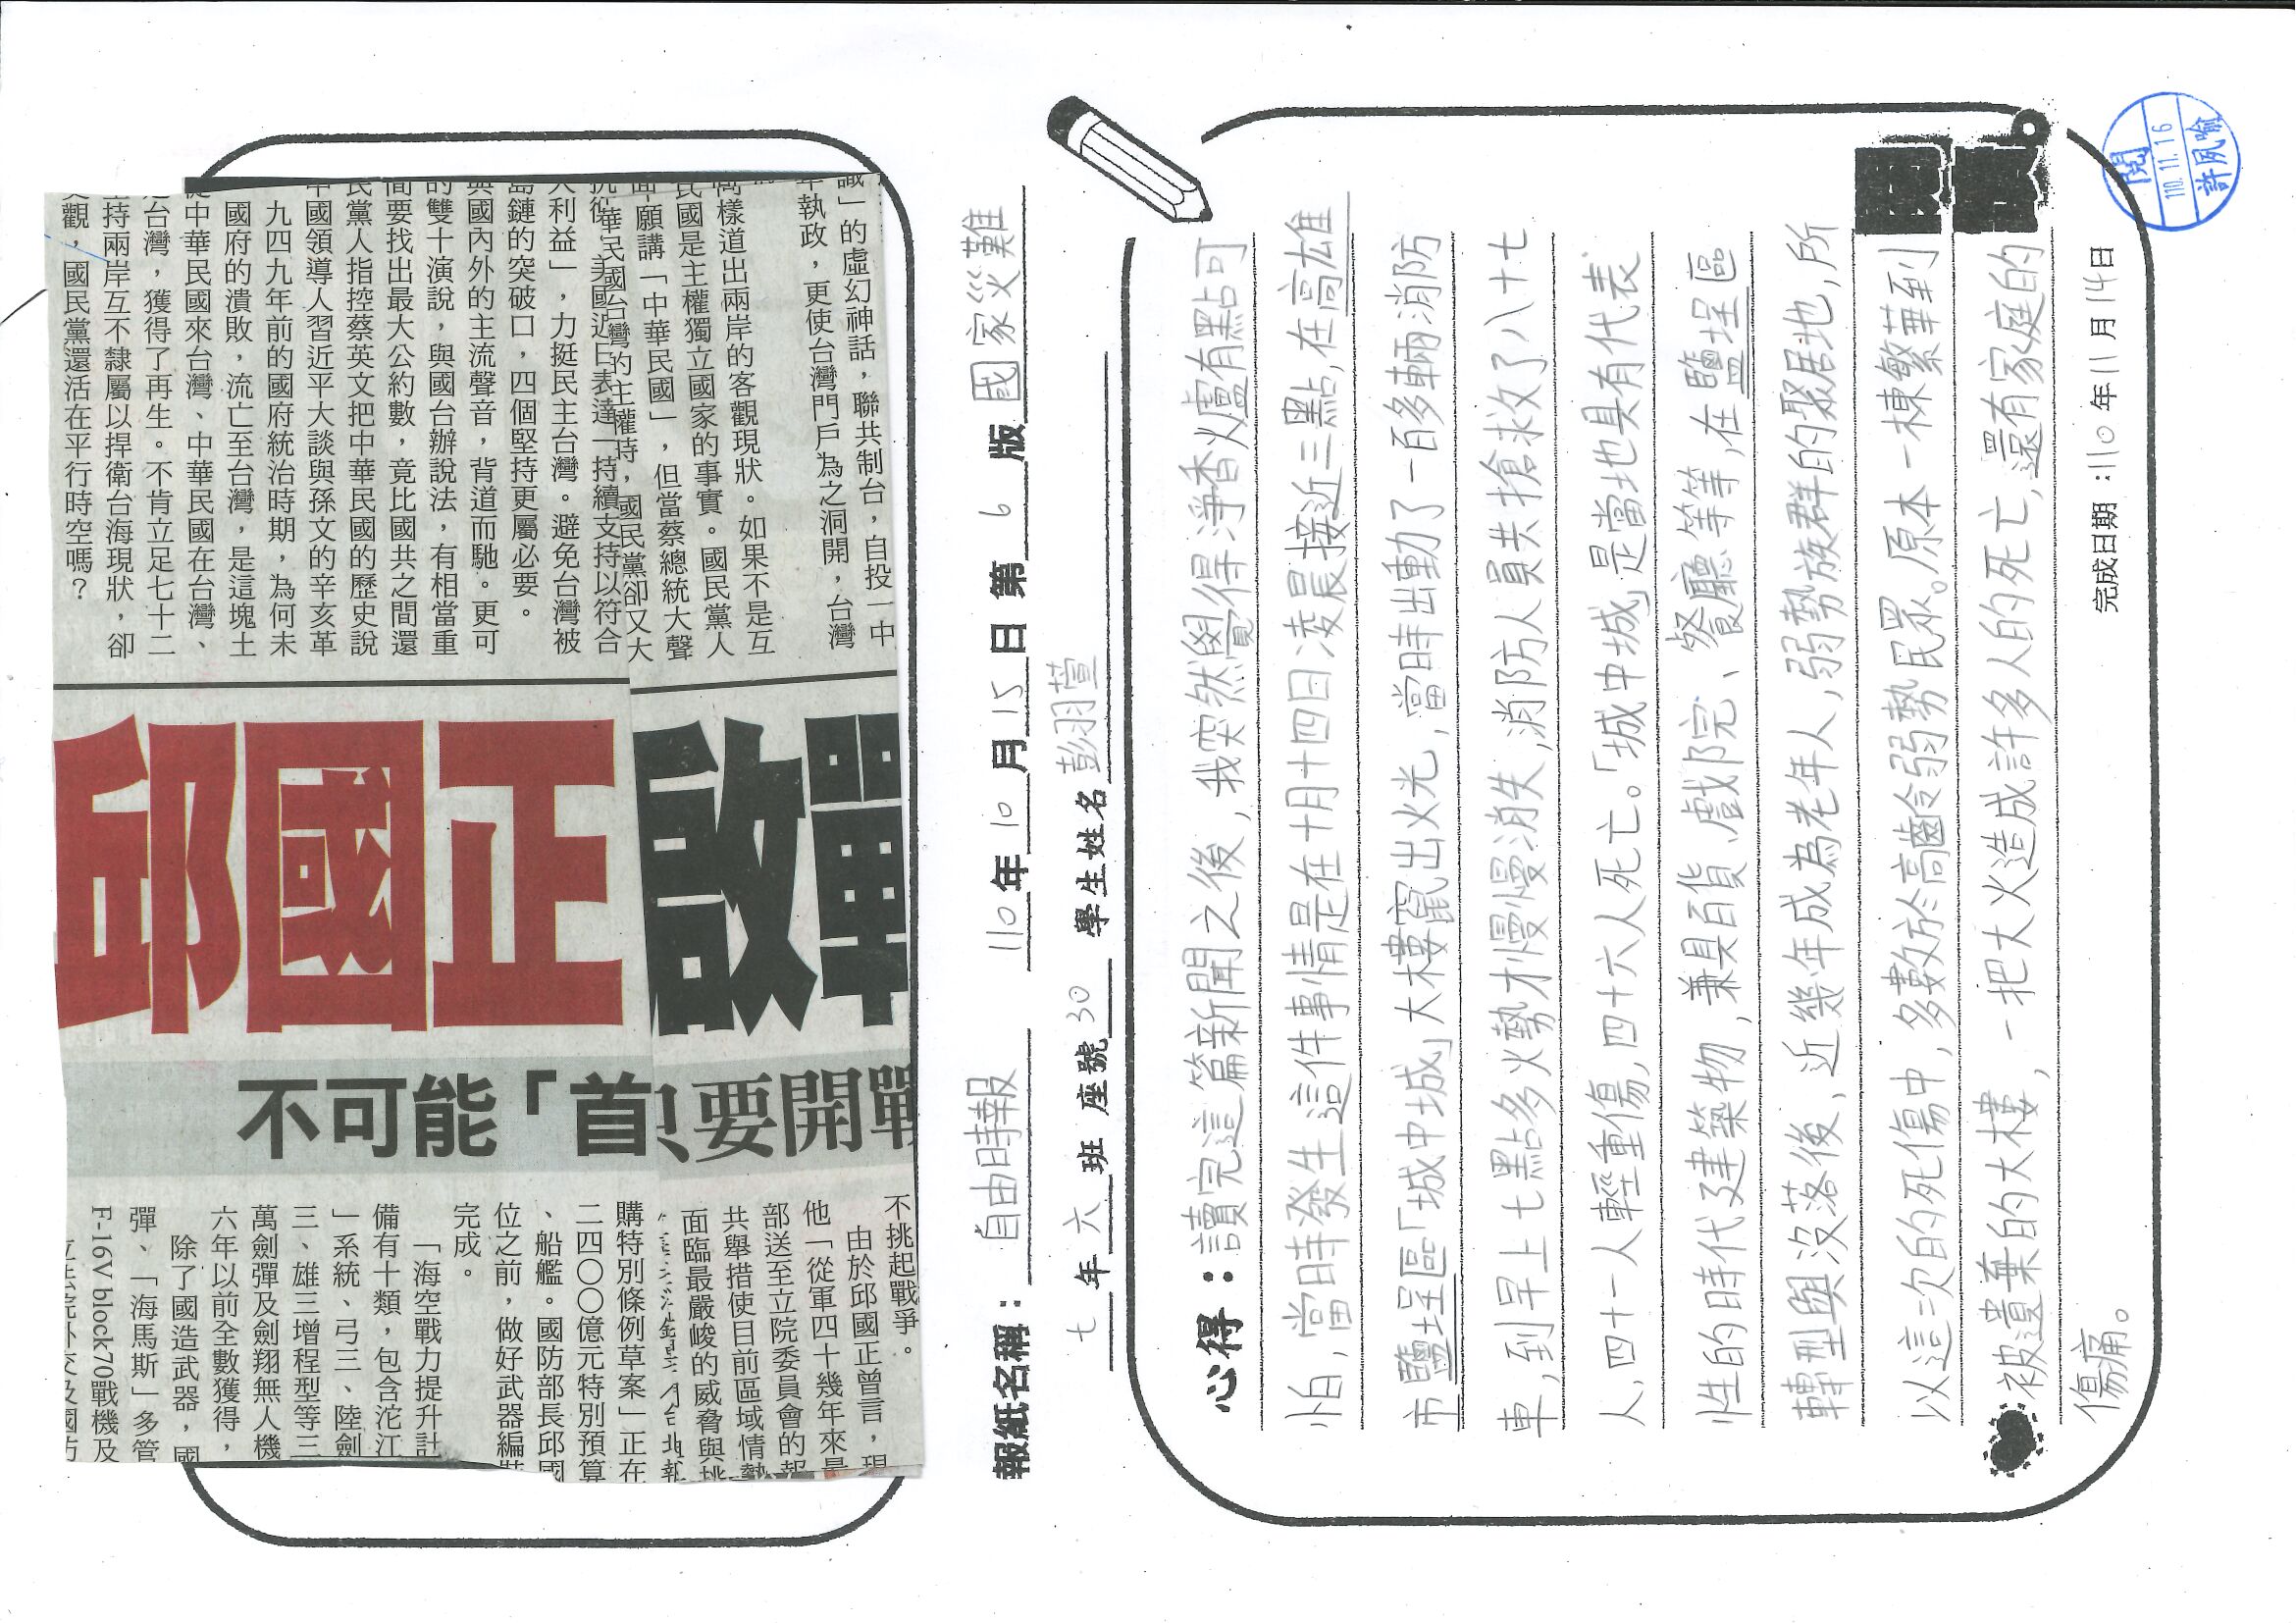 識」的虛幻神話，聯共制台，自投一中
執政，更使台灣門戶為之洞開，台灣
萬樣道出兩岸的客觀現狀。如果不是互
民國是主權獨立國家的事實。國民黨人
願講「中華民國」，但當蔡總統大聲
華民國台灣的主權時，國民黨卻又大
美國近日表達「持續支持以符合
大利益」，力挺民主台灣。避免台灣被
島鏈的突破口，四個堅持更屬必要。
與國內外的主流聲音，背道而馳。更可
的雙十演說，與國台辦說法，有相當重
間要找出最大公約數，竟比國共之間還
民黨人指控蔡英文把中華民國的歷史說
中國領導人習近平大談與孫文的辛亥革
九四九年前的國府統治時期，為何未
國府的潰敗，流亡至台灣，是這塊土
從中華民國來台灣、中華民國在台灣、
台灣，獲得了再生。不肯立足七十二
持兩岸互不隸屬以捍衛台海現狀，卻
觀，國民黨還活在平行時空嗎？
邱國正啟戰
不可能「首只要開戰
不挑起戰爭。
由於邱國正曾言，現
他「從軍四十幾年來最
部送至立院委員會的報
共舉措使目前區域情勢
面臨最嚴峻的威脅與挑
購特別條例草案」正在
二四〇〇億元特別預算
、船艦。國防部長邱國
位之前，做好武器編裝
完成。
「海空戰力提升計
備有十類，包含沱江
」系統、弓三、陸劍
三、雄三增程型等三
萬劍彈及劍翔無人機
六年以前全數獲得，
除了國造武器，國
彈、「海馬斯」多管
F-16V block70戰機及
報紙名稱：自由時報 110年10月15日 第6版 國家災難
七年六班 座號30 學生姓名彭羽萱
心得：讀完這篇新聞之後，我突然覺得淨香火爐有點可
怕，當時發生這件事情是在十月十四日凌晨接近三點，在高雄
市鹽埕區「城中城」大樓竄出火光，當時出動了一百多輛消防
車，到早上七點多火勢才慢慢消失，消防人員共搶救了八十七
人，四十一人輕重傷，四十六人死亡。「城中城」是當地具有代表
性的時代建築物，兼具百貨、戲院、餐廳等等，在鹽埕區
轉型與沒落後，近幾年成為老年人，弱勢族群的聚居地，所
以這次的死傷中，多數於高齡弱勢民眾。原本一棟繁華到
被遺棄的大樓，一把大火造成許多人的死亡，還有家庭的
傷痛。
完成日期：110年11月14日
閱
110.11.16
許夙喻